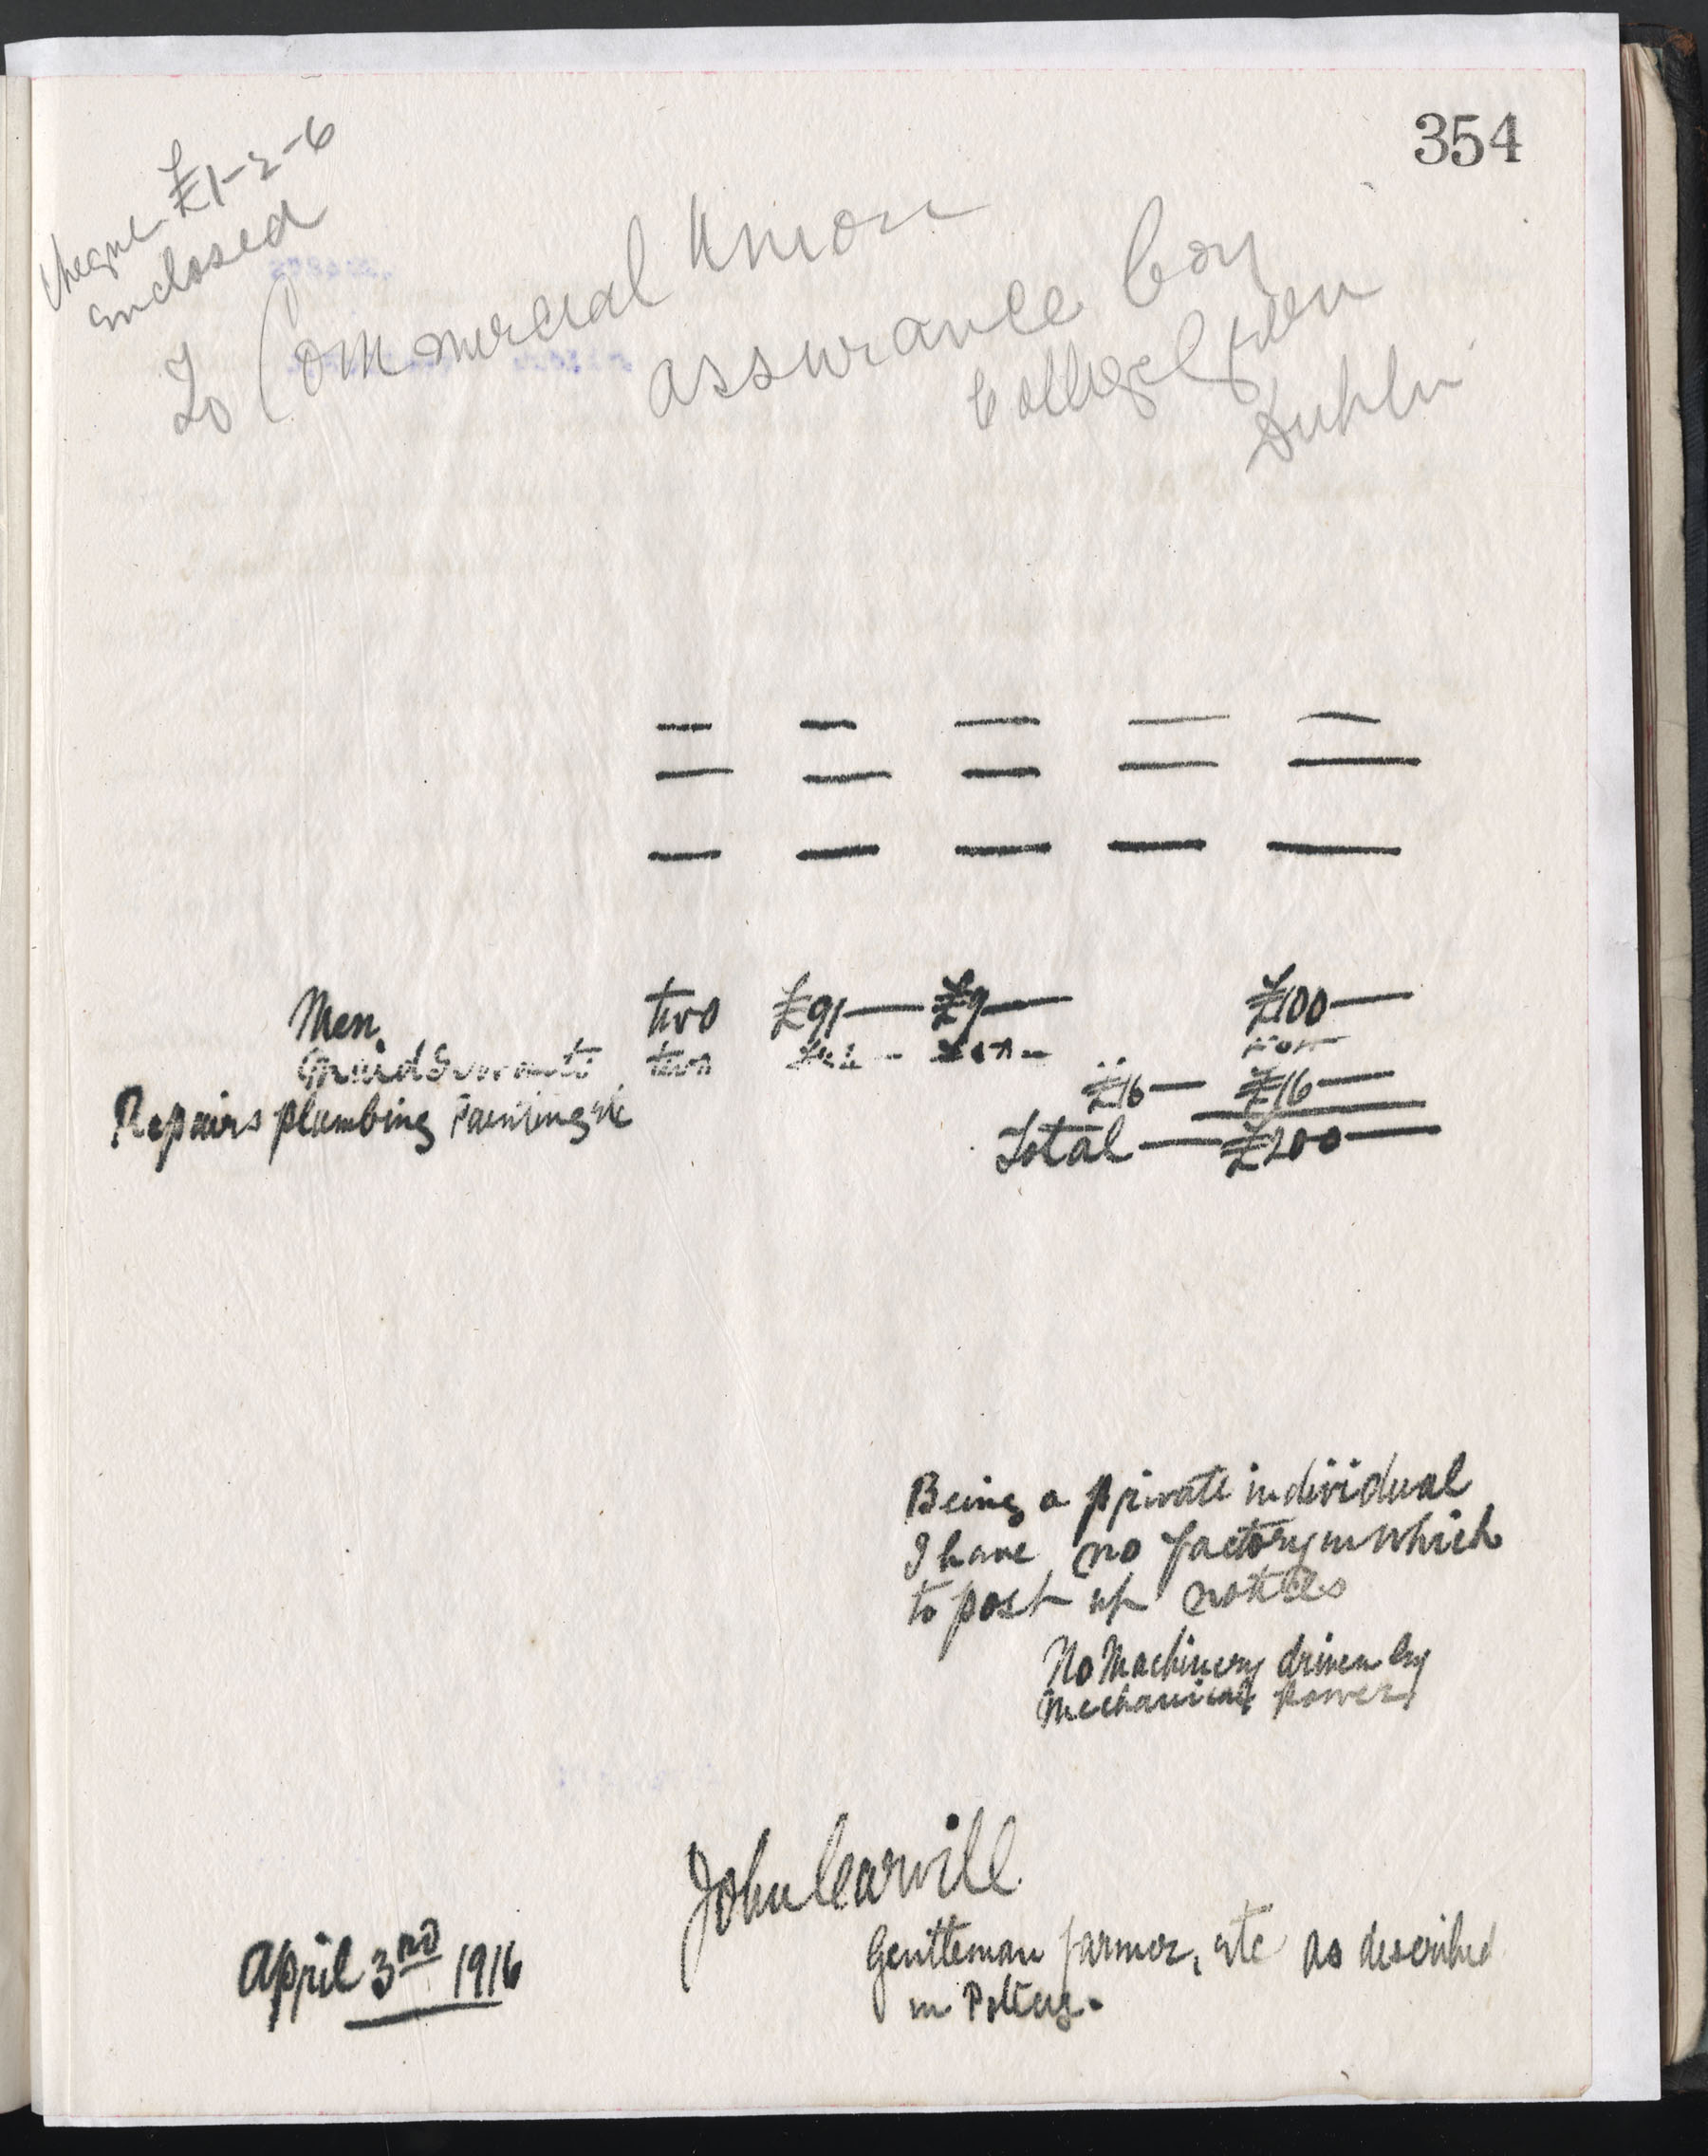 354
Cheque £1-2-6
enclosed
To Commercial Union
Assurance Coy
College Green
Dublin
Men two £91— £9— £100—
Maid Servants two
£16— £16—
Repairs plumbing Painting etc
Total — £200—
Being a private individual
I have no factory in which
to post up notices
No Machinery driven by
Mechanical power
John Carvill
Gentleman farmer, etc as described
in Policy.
April 3rd 1916